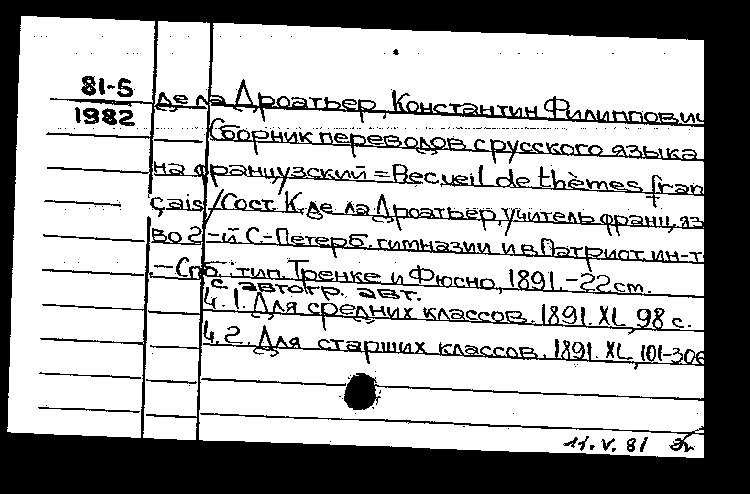 81-5
1982
де ла Дроатьер, Константин Филиппович
Сборник переводов с русского языка
на французский = Recueil de thèmes fran
çais / Сост. К. де ла Дроатьер, учитель франц. яз
во 2-й С-Петерб. гимназии и в Патриот. ин-т
.-Спб. тип. Тренке и Фюсно, 1891.-22 cm.
с автогр. авт.
Ч. 1. Для средних классов. 1891. XI, 98 с.
Ч. 2. Для старших классов. 1891. XI, 101-306
11. V. 81